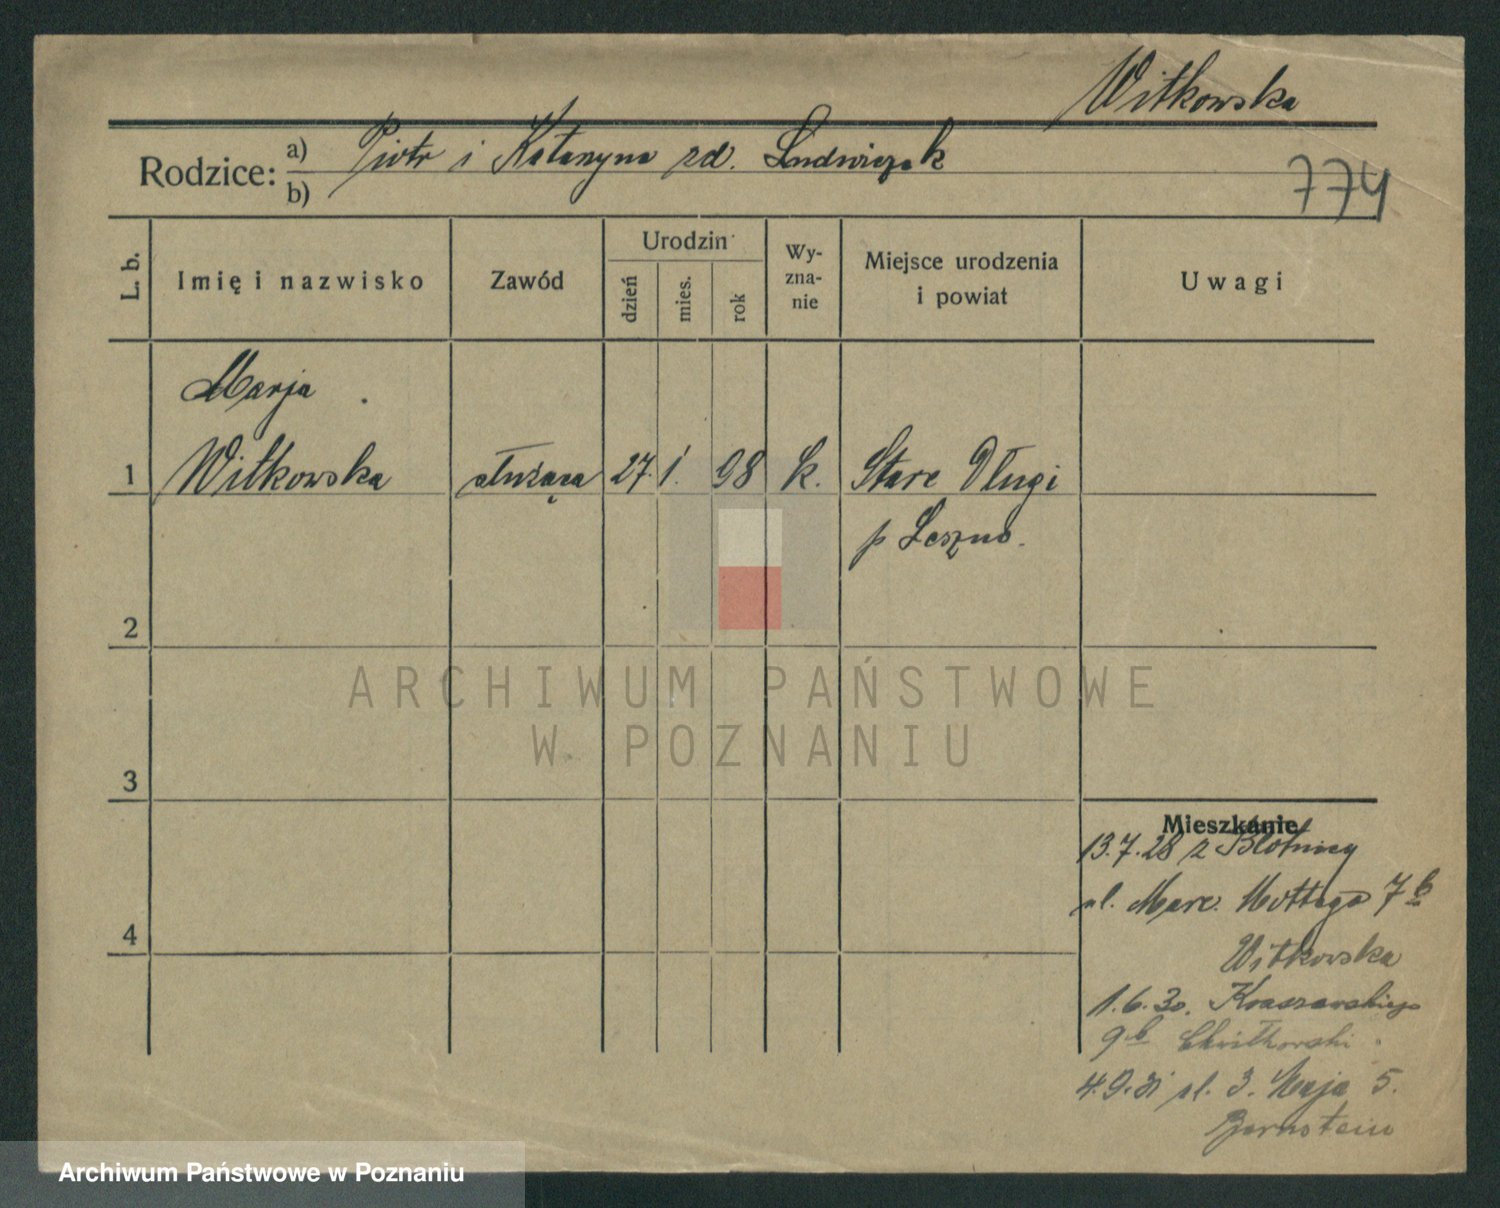 Witkowska
Rodzice: a) Piotr i Katarzyna zd. Ludwiczak
b)
774
L. b.
Imię i nazwisko
Zawód
Urodzin
dzień
mies.
rok
Wy-
zna-
nie
Miejsce urodzenia
i powiat
Uwagi
Marja
1 Witkowska służąca 27. 1. 98 k. Stare Długi
p Leszno.
2
3
4
ARCHIWUM PAŃSTWOWE
W POZNANIU
Mieszkanie
13.7.28 z Błotnicy
ul. Marc. Mottego 7 b
Witkowska
1.6.30. Kraszewskiego
9b Chwiłkowski
4.9.31 ul. 3. Maja 5.
Bernstein
Archiwum Państwowe w Poznaniu